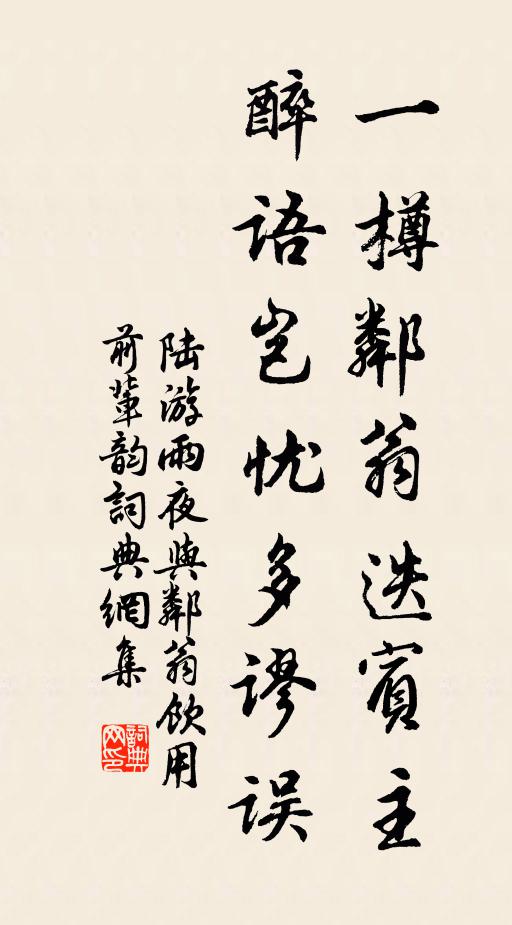 一樽鄰翁迭賓主
醉語岂忧多謬误
陆游雨夜與鄰翁飲用
前輩韵詞典網集
詞典
网印